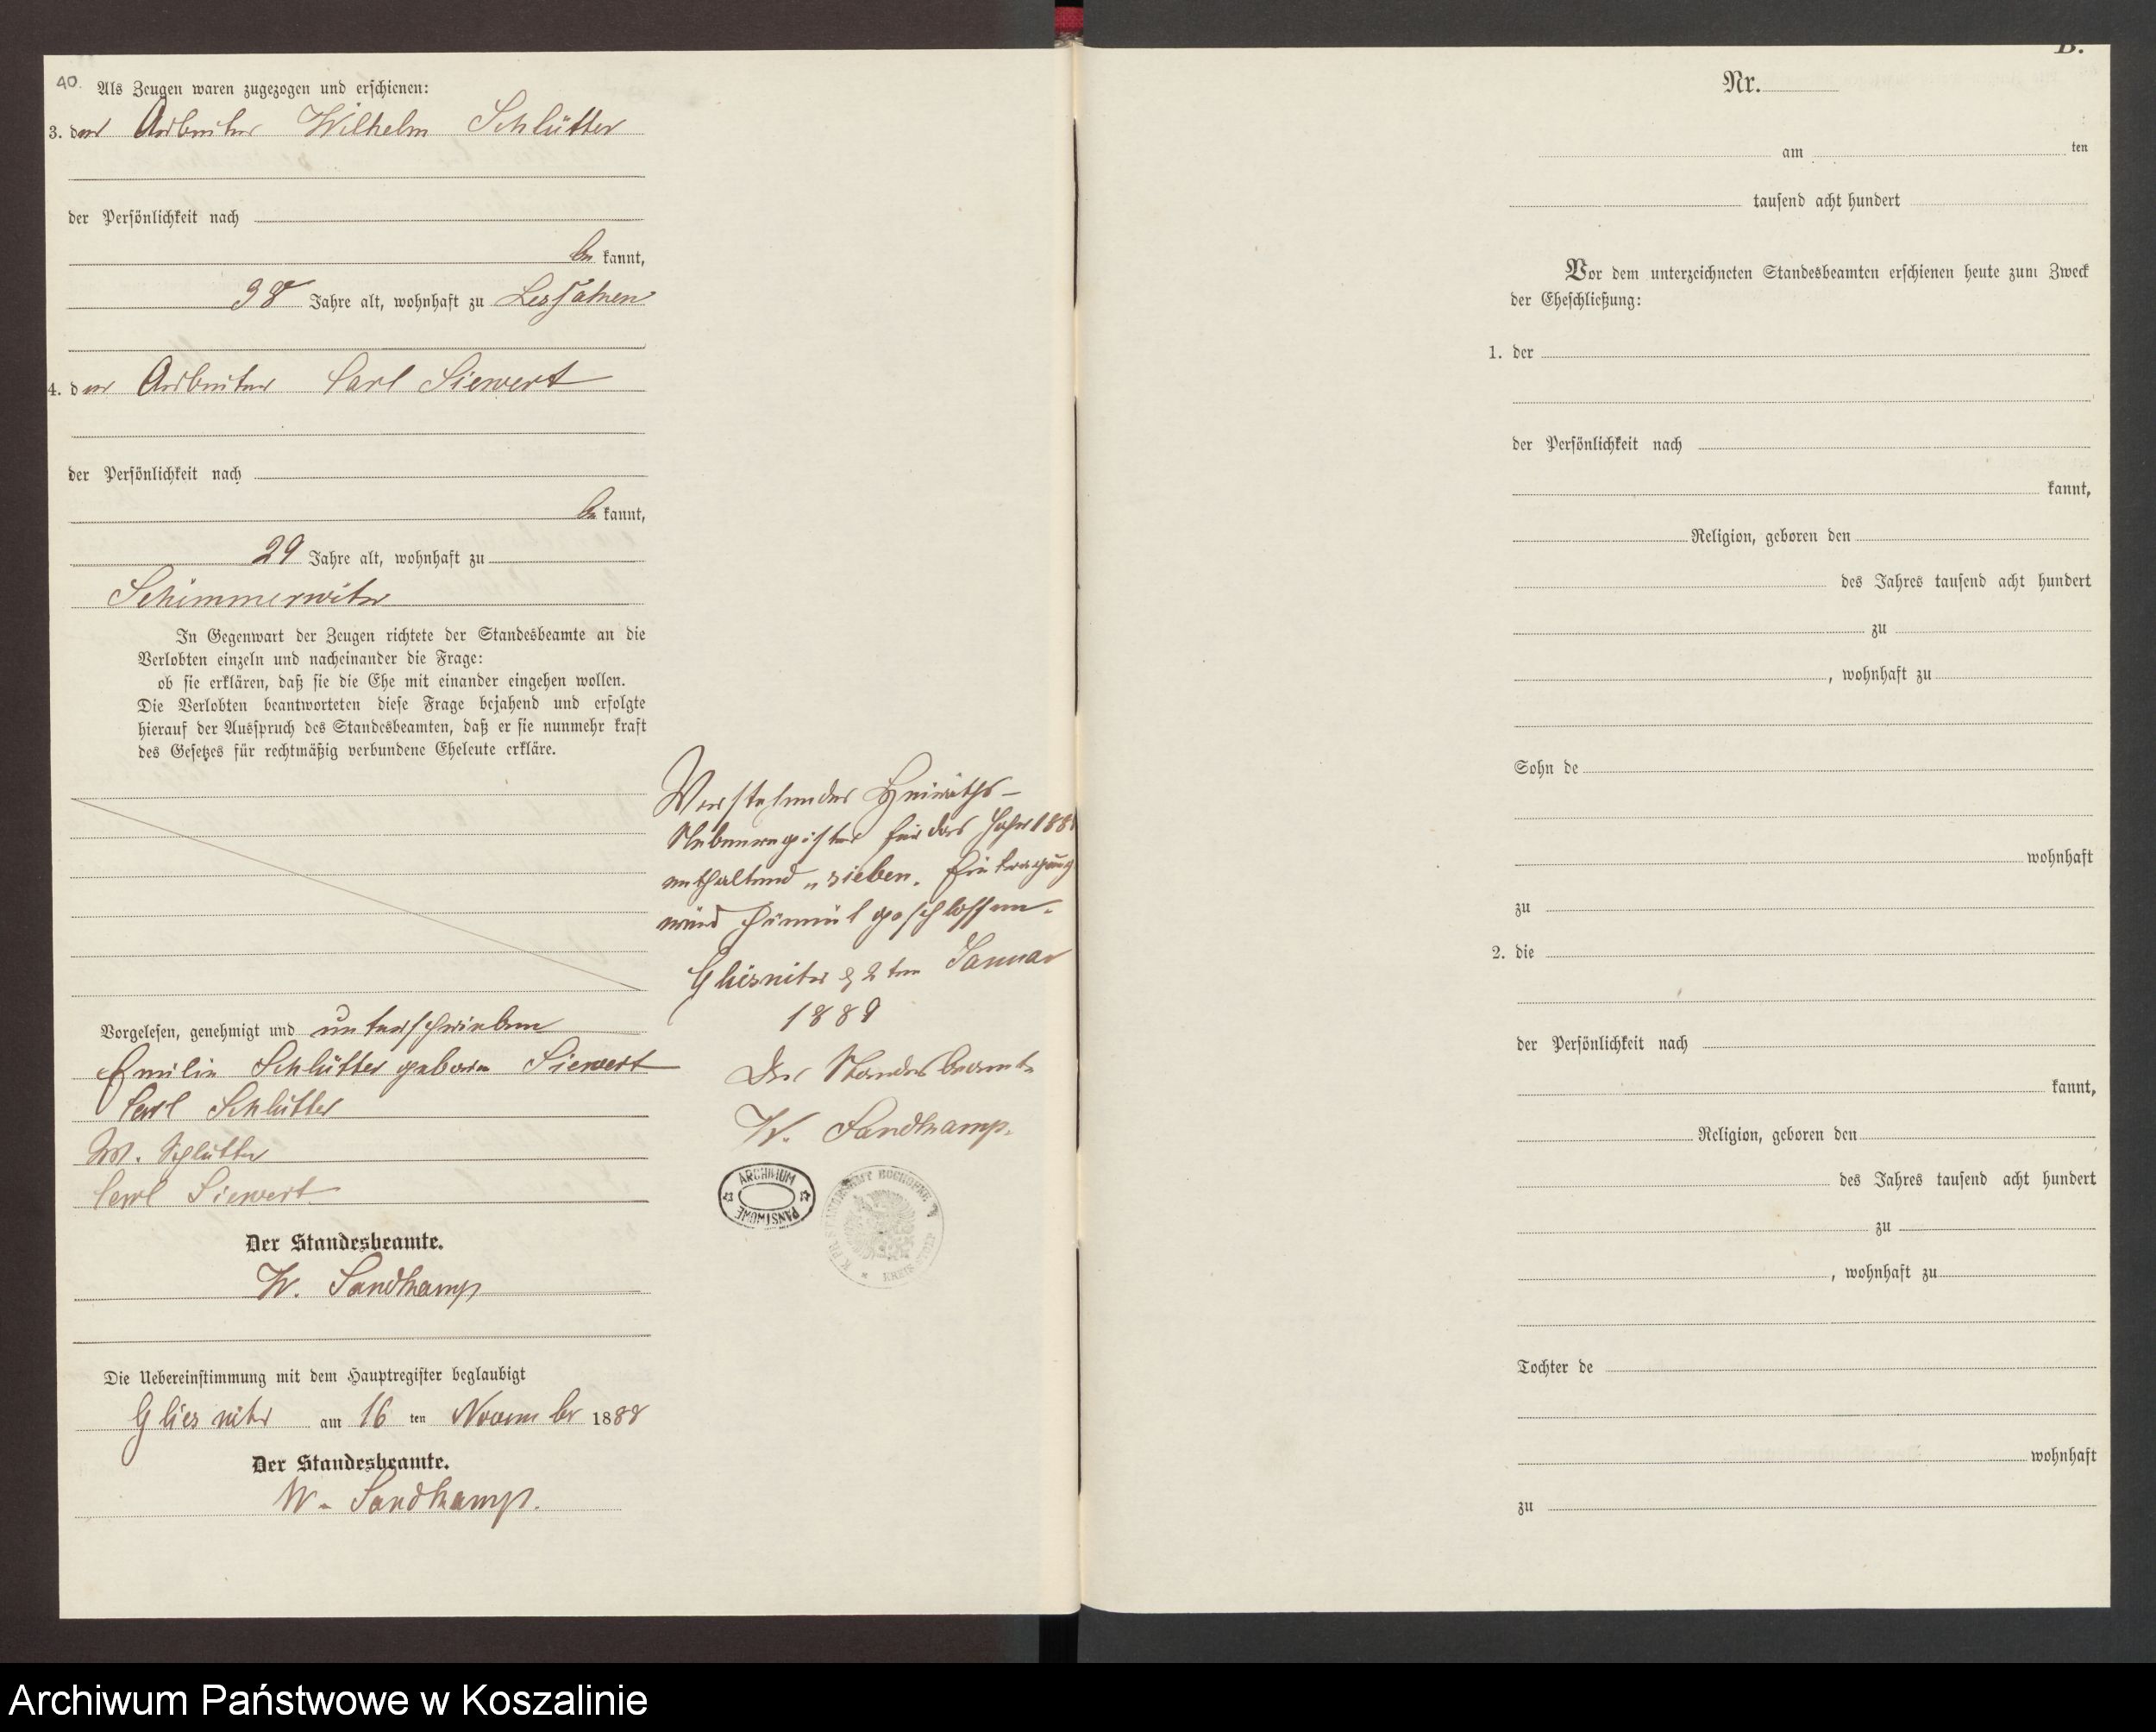 40.
Als Zeugen waren zugezogen und erschienen:
3. der Arbeiter Wilhelm Schlütter
der Persönlichkeit nach
be kannt,
38 Jahre alt, wohnhaft zu
4. der Arbeiter Carl Siewert
der Persönlichkeit nach
be kannt,
29 Jahre alt, wohnhaft zu
Schimmerwitz
In Gegenwart der Zeugen richtete der Standesbeamte an die
Verlobten einzeln und nacheinander die Frage:
ob sie erklären, daß sie die Ehe mit einander eingehen wollen.
Die Verlobten beantworteten diese Frage bejahend und erfolgte
hierauf der Ausspruch des Standesbeamten, daß er sie nunmehr kraft
des Gesetzes für rechtmäßig verbundene Eheleute erkläre.
Vorgelesen, genehmigt und unterschrieben
Emilie Schlütter geborne Siewert
Carl Schlütter
W. Schlütter
Carl Siewert
Der Standesbeamte.
W. Sandkamp
Die Uebereinstimmung mit dem Hauptregister beglaubigt
Gliesnitz am 16 ten November 1888
Der Standesbeamte.
W. Sandkamp.
Vorstehendes Heiraths-
Nebenregister für das Jahr 188
enthaltend "sieben" Eintragung
wird hiermit geschlossen.
Gliesnitz d 2ten Januar
1889
Der Standesbeamte
W. Sandkamp.
ARCHIWUM
PAŃSTWOWE
KREIS STOLP
B.
Nr.
am ten
tausend acht hundert
Vor dem unterzeichneten Standesbeamten erschienen heute zum Zweck
der Eheschließung:
1. der
der Persönlichkeit nach
kannt,
Religion, geboren den
des Jahres tausend acht hundert
zu
, wohnhaft zu
Sohn de
wohnhaft
zu
2. die
der Persönlichkeit nach
kannt,
Religion, geboren den
des Jahres tausend acht hundert
zu
, wohnhaft zu
Tochter de
wohnhaft
zu
Archiwum Państwowe w Koszalinie